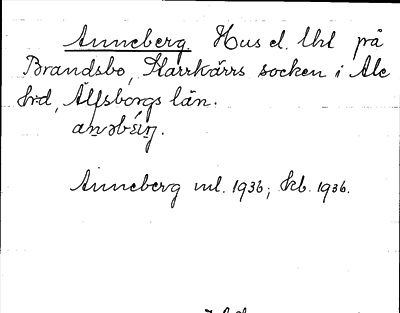 Anneberg. Hus el. lht på
Brandsbo, Starrkärrs socken i Ale
hrd, Älfsborgs län.
Anneberg ml. 1936; kb. 1936.